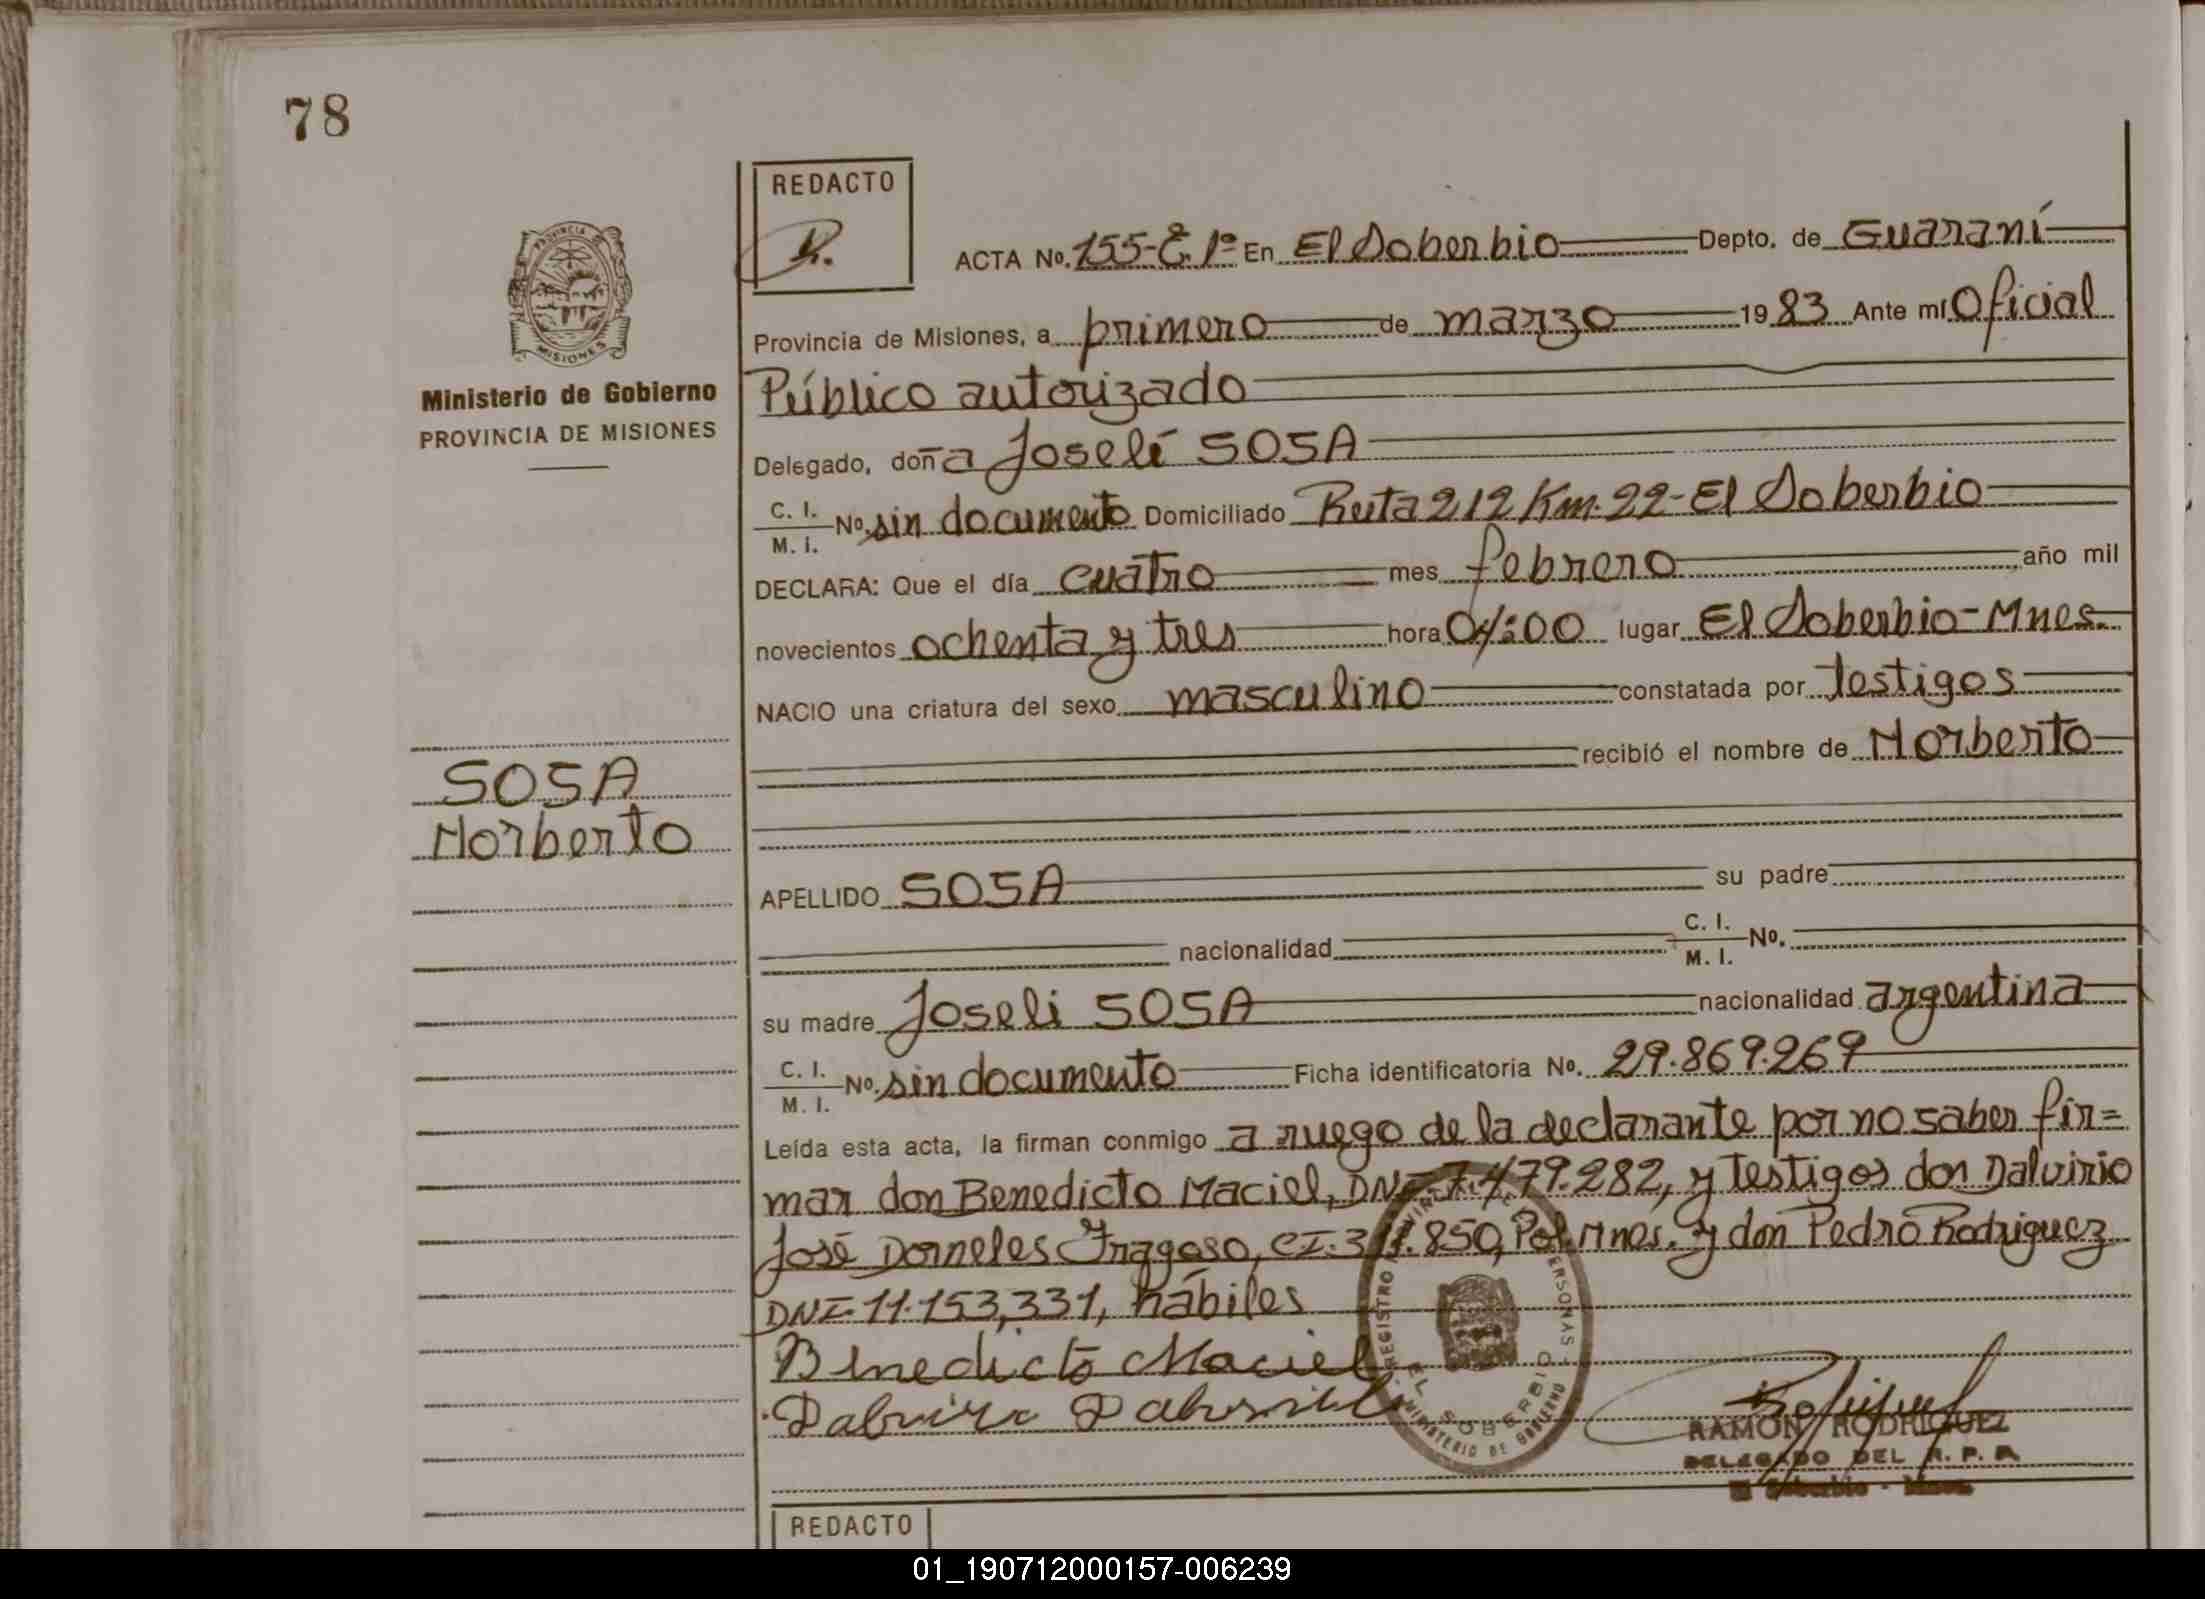 78
REDACTO
PROVINCIA
MISIONES
Ministerio de Gobierno
PROVINCIA DE MISIONES
ACTA No. 155-E. 1º En El Soberbio Depto. de Guaraní
Provincia de Misiones, a primero de marzo 1983 Ante mí Oficial
Público autorizado
Delegado, doña Joseli SOSA
C. I.
M. I. No. sin documento Domiciliado Ruta 212 Km. 22-El Soberbio
DECLARA: Que el día cuatro mes febrero año mil
novecientos ochenta y tres hora 04:00 lugar El Soberbio-Mnes.
NACIO una criatura del sexo masculino constatada por testigos
recibió el nombre de Norberto
SOSA
Norberto
APELLIDO SOSA su padre
nacionalidad C. I.
M. I. No.
su madre Joseli SOSA nacionalidad argentina
C. I.
M. I. No. sin documento Ficha identificatoria No. 29.869.269
Leída esta acta, la firman conmigo a ruego de la declarante por no saber fir=
mar don Benedicto Maciel, DNI-7.479.282, y testigos don Dalvirio
José Dorneles Fragoso, CI. 850, Pol. Mnes. y don Pedro Rodriguez
DNI-11.153,331, hábiles
Benedicto Maciel
REGISTRO PERSONAS
EL SOBERBIO
MINISTERIO DE GOBIERNO
RAMON RODRIGUEZ
DELEGADO DEL R. P. P.
El Soberbio - Mnes.
REDACTO
01_190712000157-006239